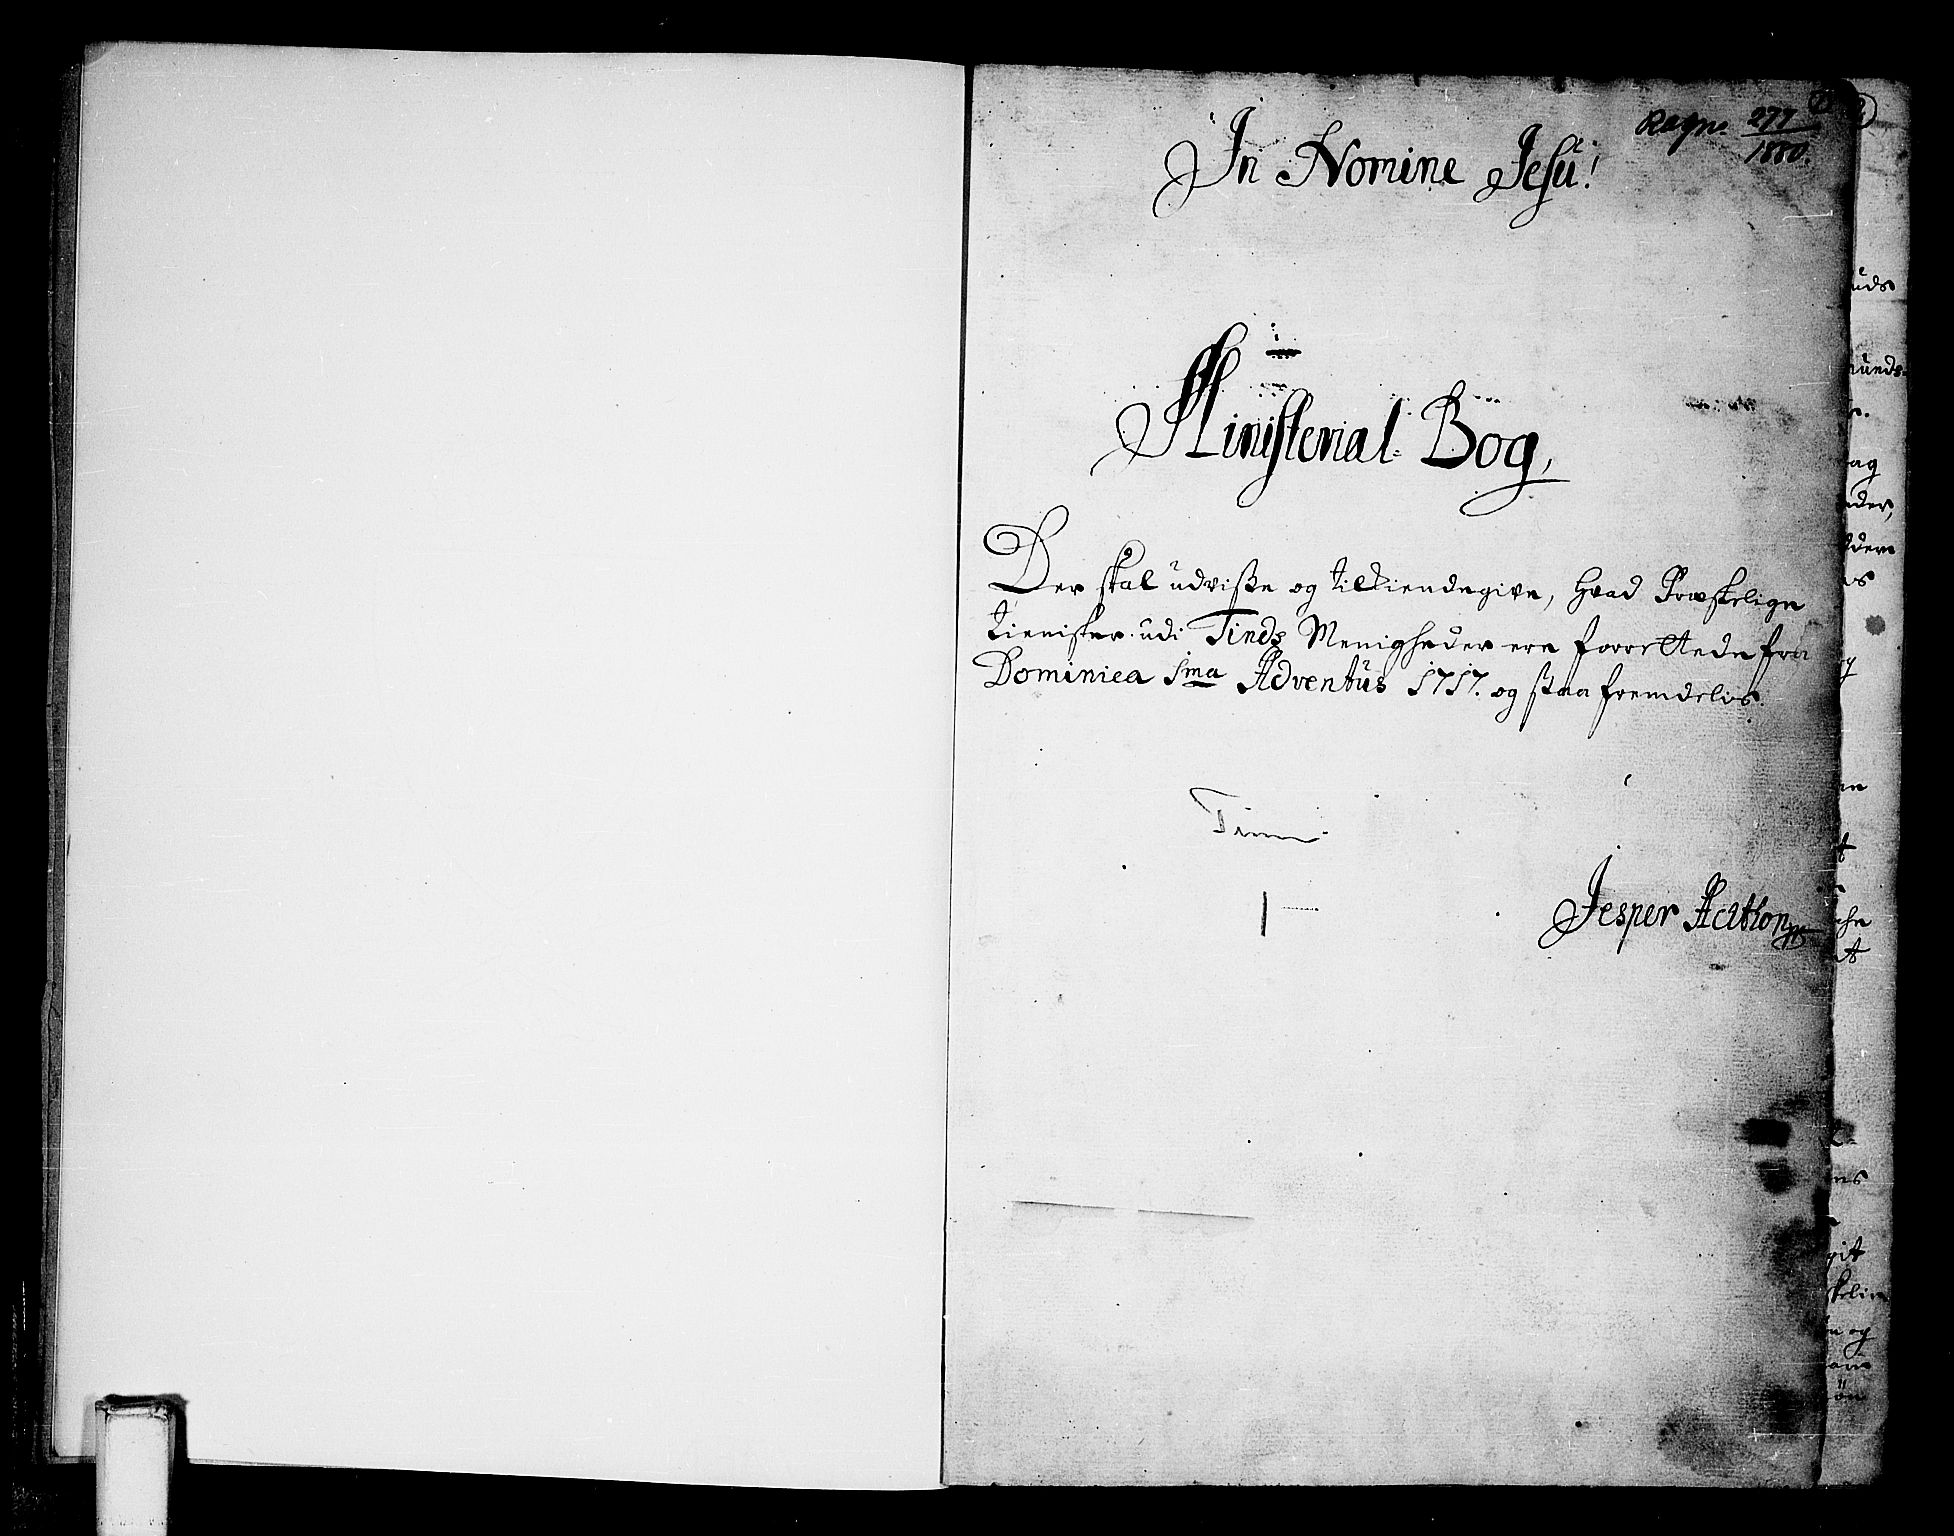 277
1880.
In Nomine Jesu!
Ministerial Bog,
Der skal udviße og tilkiendegive, hvad Præstelige
tienister udi Tinds Menigheder ere forrettede fra
Dominica 1ma Adventus 1717. og staa fremdelis.
Tinn
Jesper
uds
ag
git
og